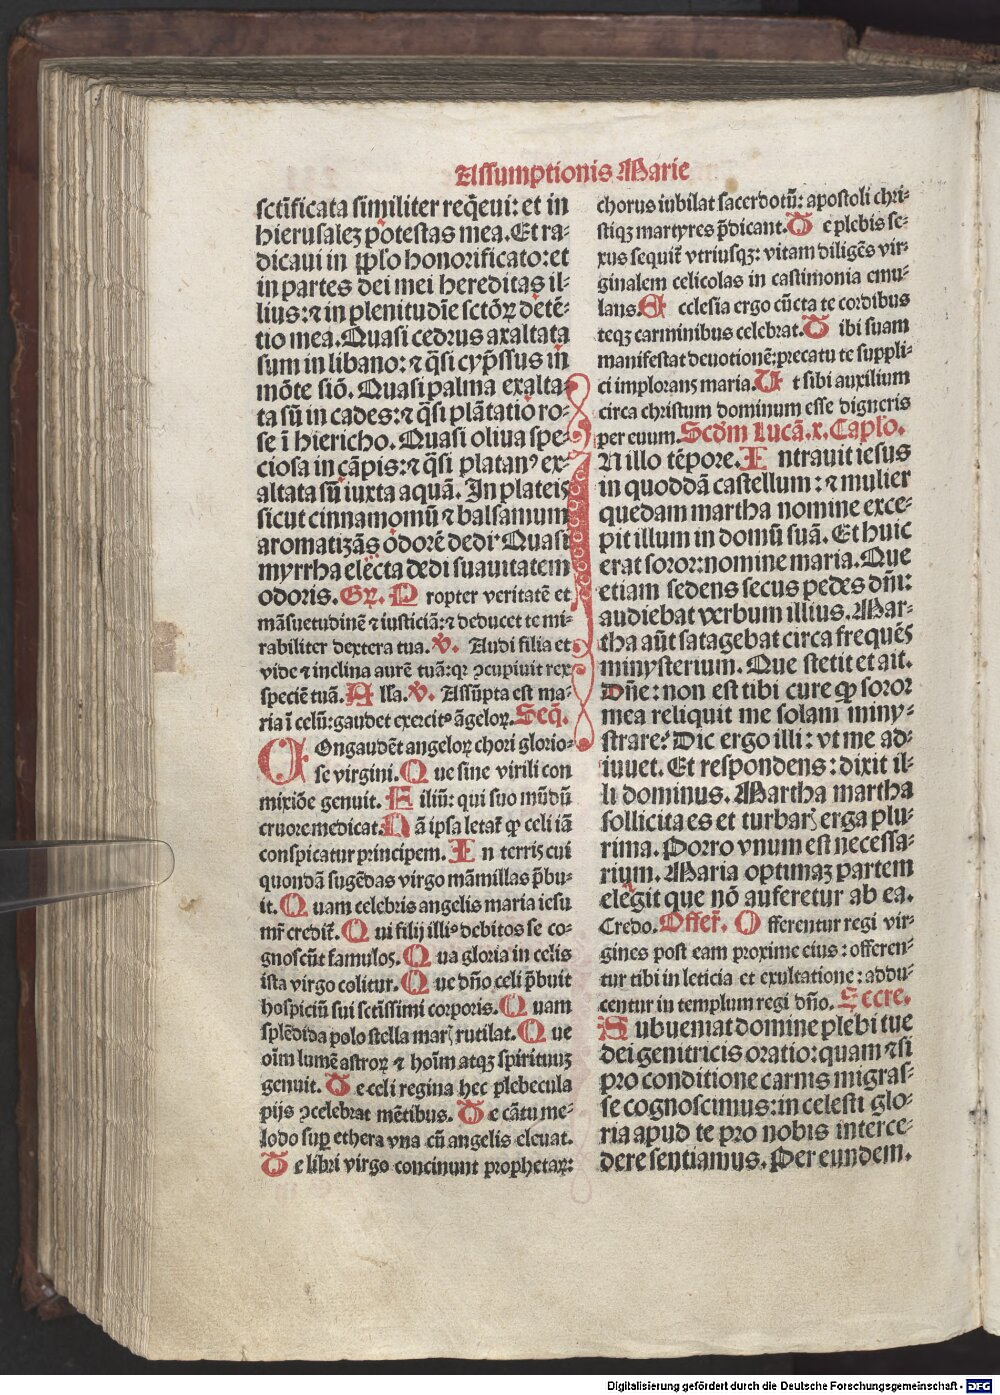 Assumptionis Marie
sctīficata similiter reqͥeui: et in
hierusalez potestas mea. Et ra⸗
dicaui in pplo honorificato: et
in partes dei mei hereditas il⸗
lius: ⁊ in plenitudīe sctōꝝ detē⸗
tio mea. Quasi cedrus axaltata
sum in libano: ⁊ q̄si cyp̄ssus in
mōte siō. Quasi palma exalta⸗
ta sū in cades: ⁊ q̄si plātatio ro⸗
se ī hiericho. Quasi oliua spe⸗
ciosa in cāpis: ⁊ q̄si platanꝰ ex⸗
altata sū iuxta aquā. In plateis
sicut cinnamomū ⁊ balsamum
aromatizās odorē dedi. Quasi
myrrha electa dedi suauitatem
odoris. Gꝝ. Propter veritatē et
māsuetudinē ⁊ iusticiā: ⁊ deducet te mi⸗
rabiliter dextera tua. ℣. Audi filia et
vide ⁊ inclina aurē tuā: qꝛ ↄcupiuit rex
speciē tuā. Alla. ℣. Assūpta est ma⸗
ria ī celū: gaudet exercitꝰ āgeloꝝ. Seq̄.
Congaudēt angeloꝝ chori glorio⸗
se virgini. Que sine virili con
mixiōe genuit. Filiū: qui suo mūdū
cruore medicat. Nā ipsa letat᷑ ꝙ celi iā
conspicatur principem. In terris cui
quondā sugēdas virgo māmillas p̄bu⸗
it. Quam celebris angelis maria iesu
mr̄ credit᷑. Qui filij illiꝰ debitos se co⸗
gnoscūt famulos. Qua gloria in celis
ista virgo colitur. Que dn̄o celi p̄buit
hospiciū sui sctīssimi corporis. Quam
splēdida polo stella maꝝ rutilat. Que
oīm lumē astroꝝ ⁊ hoīm atqꝫ spirituuꝫ
genuit. Te celi regina hec plebecula
pijs ↄcelebrat mētibus. Te cātu me⸗
lodo suꝑ ethera vna cū angelis eleuat.
Te libri virgo concinunt prophetaꝝ:
chorus iubilat sacerdotū: apostoli chri⸗
stiqꝫ martyres p̄dicant. Te plebis se⸗
xus sequit᷑ vtriusqꝫ: vitam diligēs vir⸗
ginalem celicolas in castimonia emu⸗
lans. Ecclesia ergo cūcta te cordibus
teqꝫ carminibus celebrat. Tibi suam
manifestat deuotionē: precatu te suppli⸗
ci implorans maria. Ut sibi auxilium
circa christum dominum esse digneris
per euum. Scdm Lucā. x. Caplo.
In illo tēpore. Intrauit iesus
in quoddā castellum: ⁊ mulier
quedam martha nomine exce⸗
pit illum in domū suā. Et huic
erat soror: nomine maria. Que
etiam sedens secus pedes dn̄i:
audiebat verbum illius. Mar⸗
tha aūt satagebat circa frequēs
minysterium. Que stetit et ait.
Dn̄e: non est tibi cure ꝙ soror
mea reliquit me solam miny⸗
strare? Dic ergo illi: vt me ad⸗
iuuet. Et respondens: dixit il⸗
li dominus. Martha martha
sollicita es et turbaꝝ erga plu⸗
rima. Porro vnum est necessa⸗
rium. Maria optimaz partem
elegit que nō auferetur ab ea.
Credo. Offer᷑. Offerentur regi vir⸗
gines post eam proxime eius: offeren⸗
tur tibi in leticia et exultatione: addu⸗
centur in templum regi dn̄o. Secre.
Subueniat domine plebi tue
dei genitricis oratio: quam ⁊si
pro conditione carnis migras⸗
se cognoscimus: in celesti glo⸗
ria apud te pro nobis interce⸗
dere sentiamus. Per eundem.
Digitalisierung gefördert durch die Deutsche Forschungsgemeinschaft - DFG